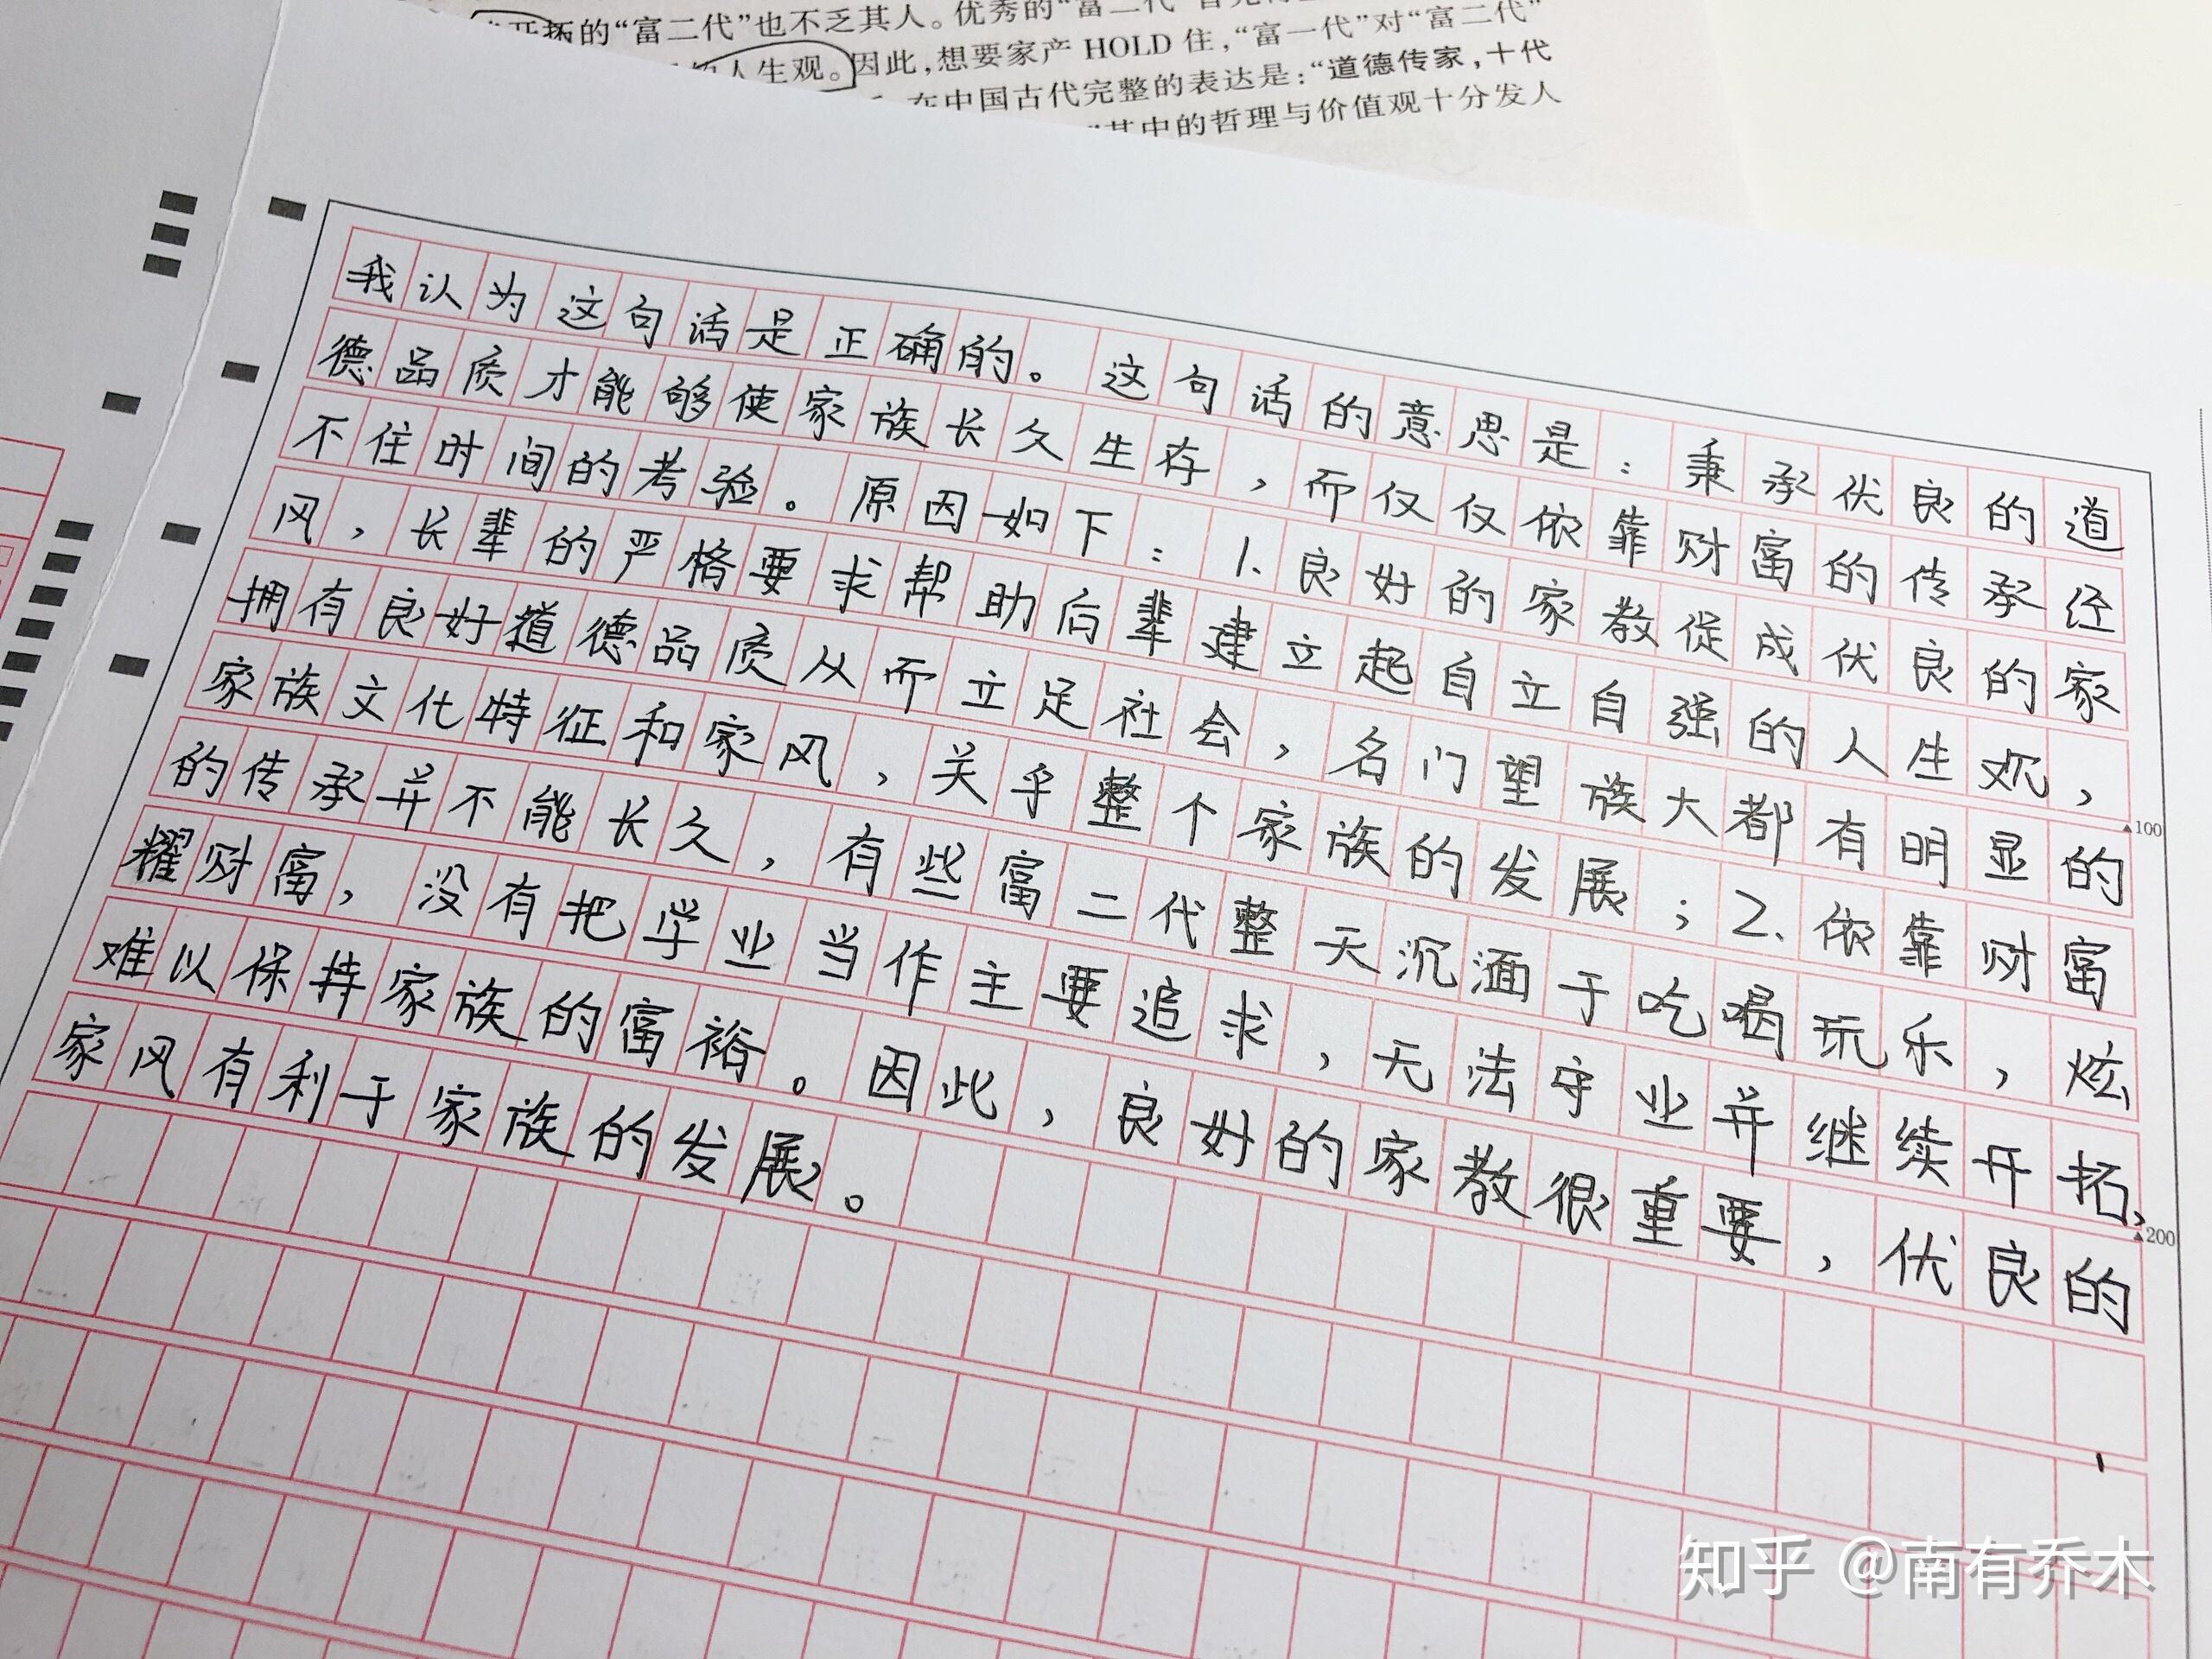 开拓的“富二代”也不乏其人。优秀的“富二代”
人生观。因此,想要家产 HOLD 住,“富一代”对“富二代”
在中国古代完整的表达是:“道德传家,十代
“其中的哲理与价值观十分发人
我认为这句话是正确的。这句话的意思是：秉承优良的道
德品质才能够使家族长久生存，而仅仅依靠财富的传承经
不住时间的考验。原因如下：1.良好的家教促成优良的家
风，长辈的严格要求帮助后辈建立起自立自强的人生观，
▲100
拥有良好道德品质从而立足社会，名门望族大都有明显的
家族文化特征和家风，关乎整个家族的发展；2.依靠财富
的传承并不能长久，有些富二代整天沉湎于吃喝玩乐，炫
耀财富，没有把学业当作主要追求，无法守业并继续开拓，
▲200
难以保持家族的富裕。因此，良好的家教很重要，优良的
家风有利于家族的发展。
知乎 @南有乔木